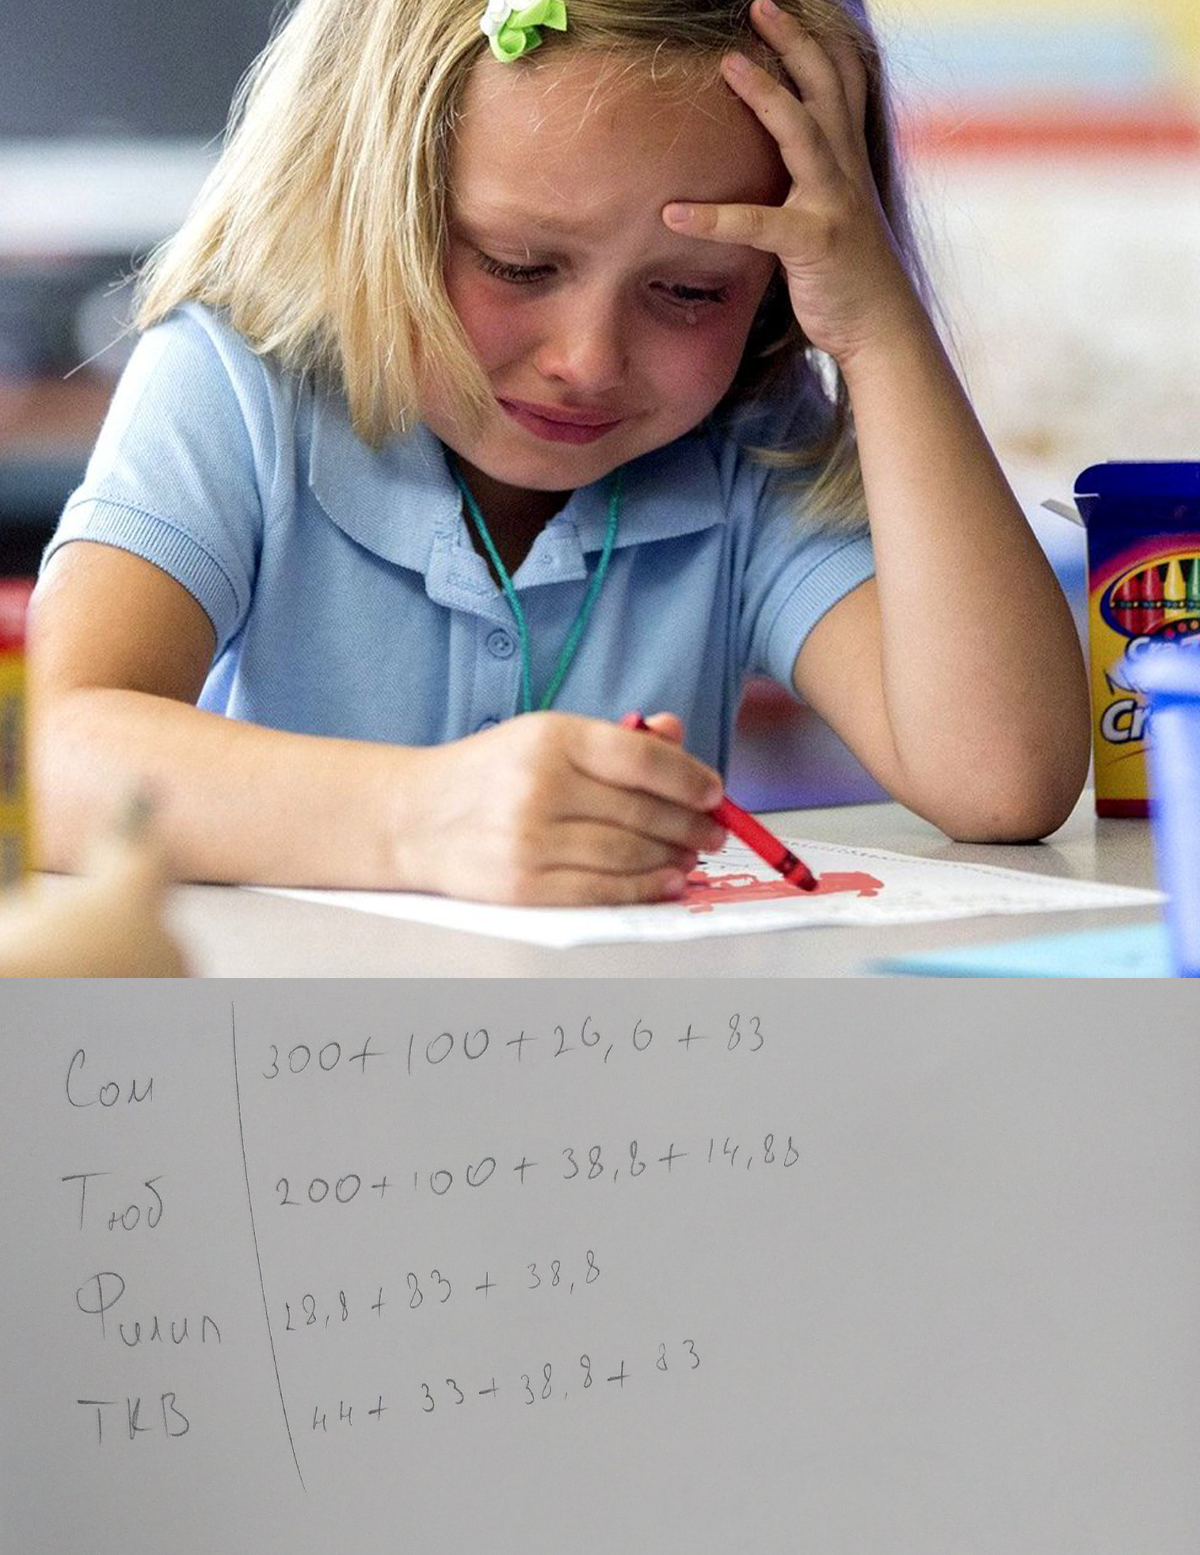 Cra-Z
Cr
Сом 300+100+26,6+83
Тюб 200+100+38,8+14,88
Филип 28,8+83+38,8
ТКВ 44+33+38,8+83